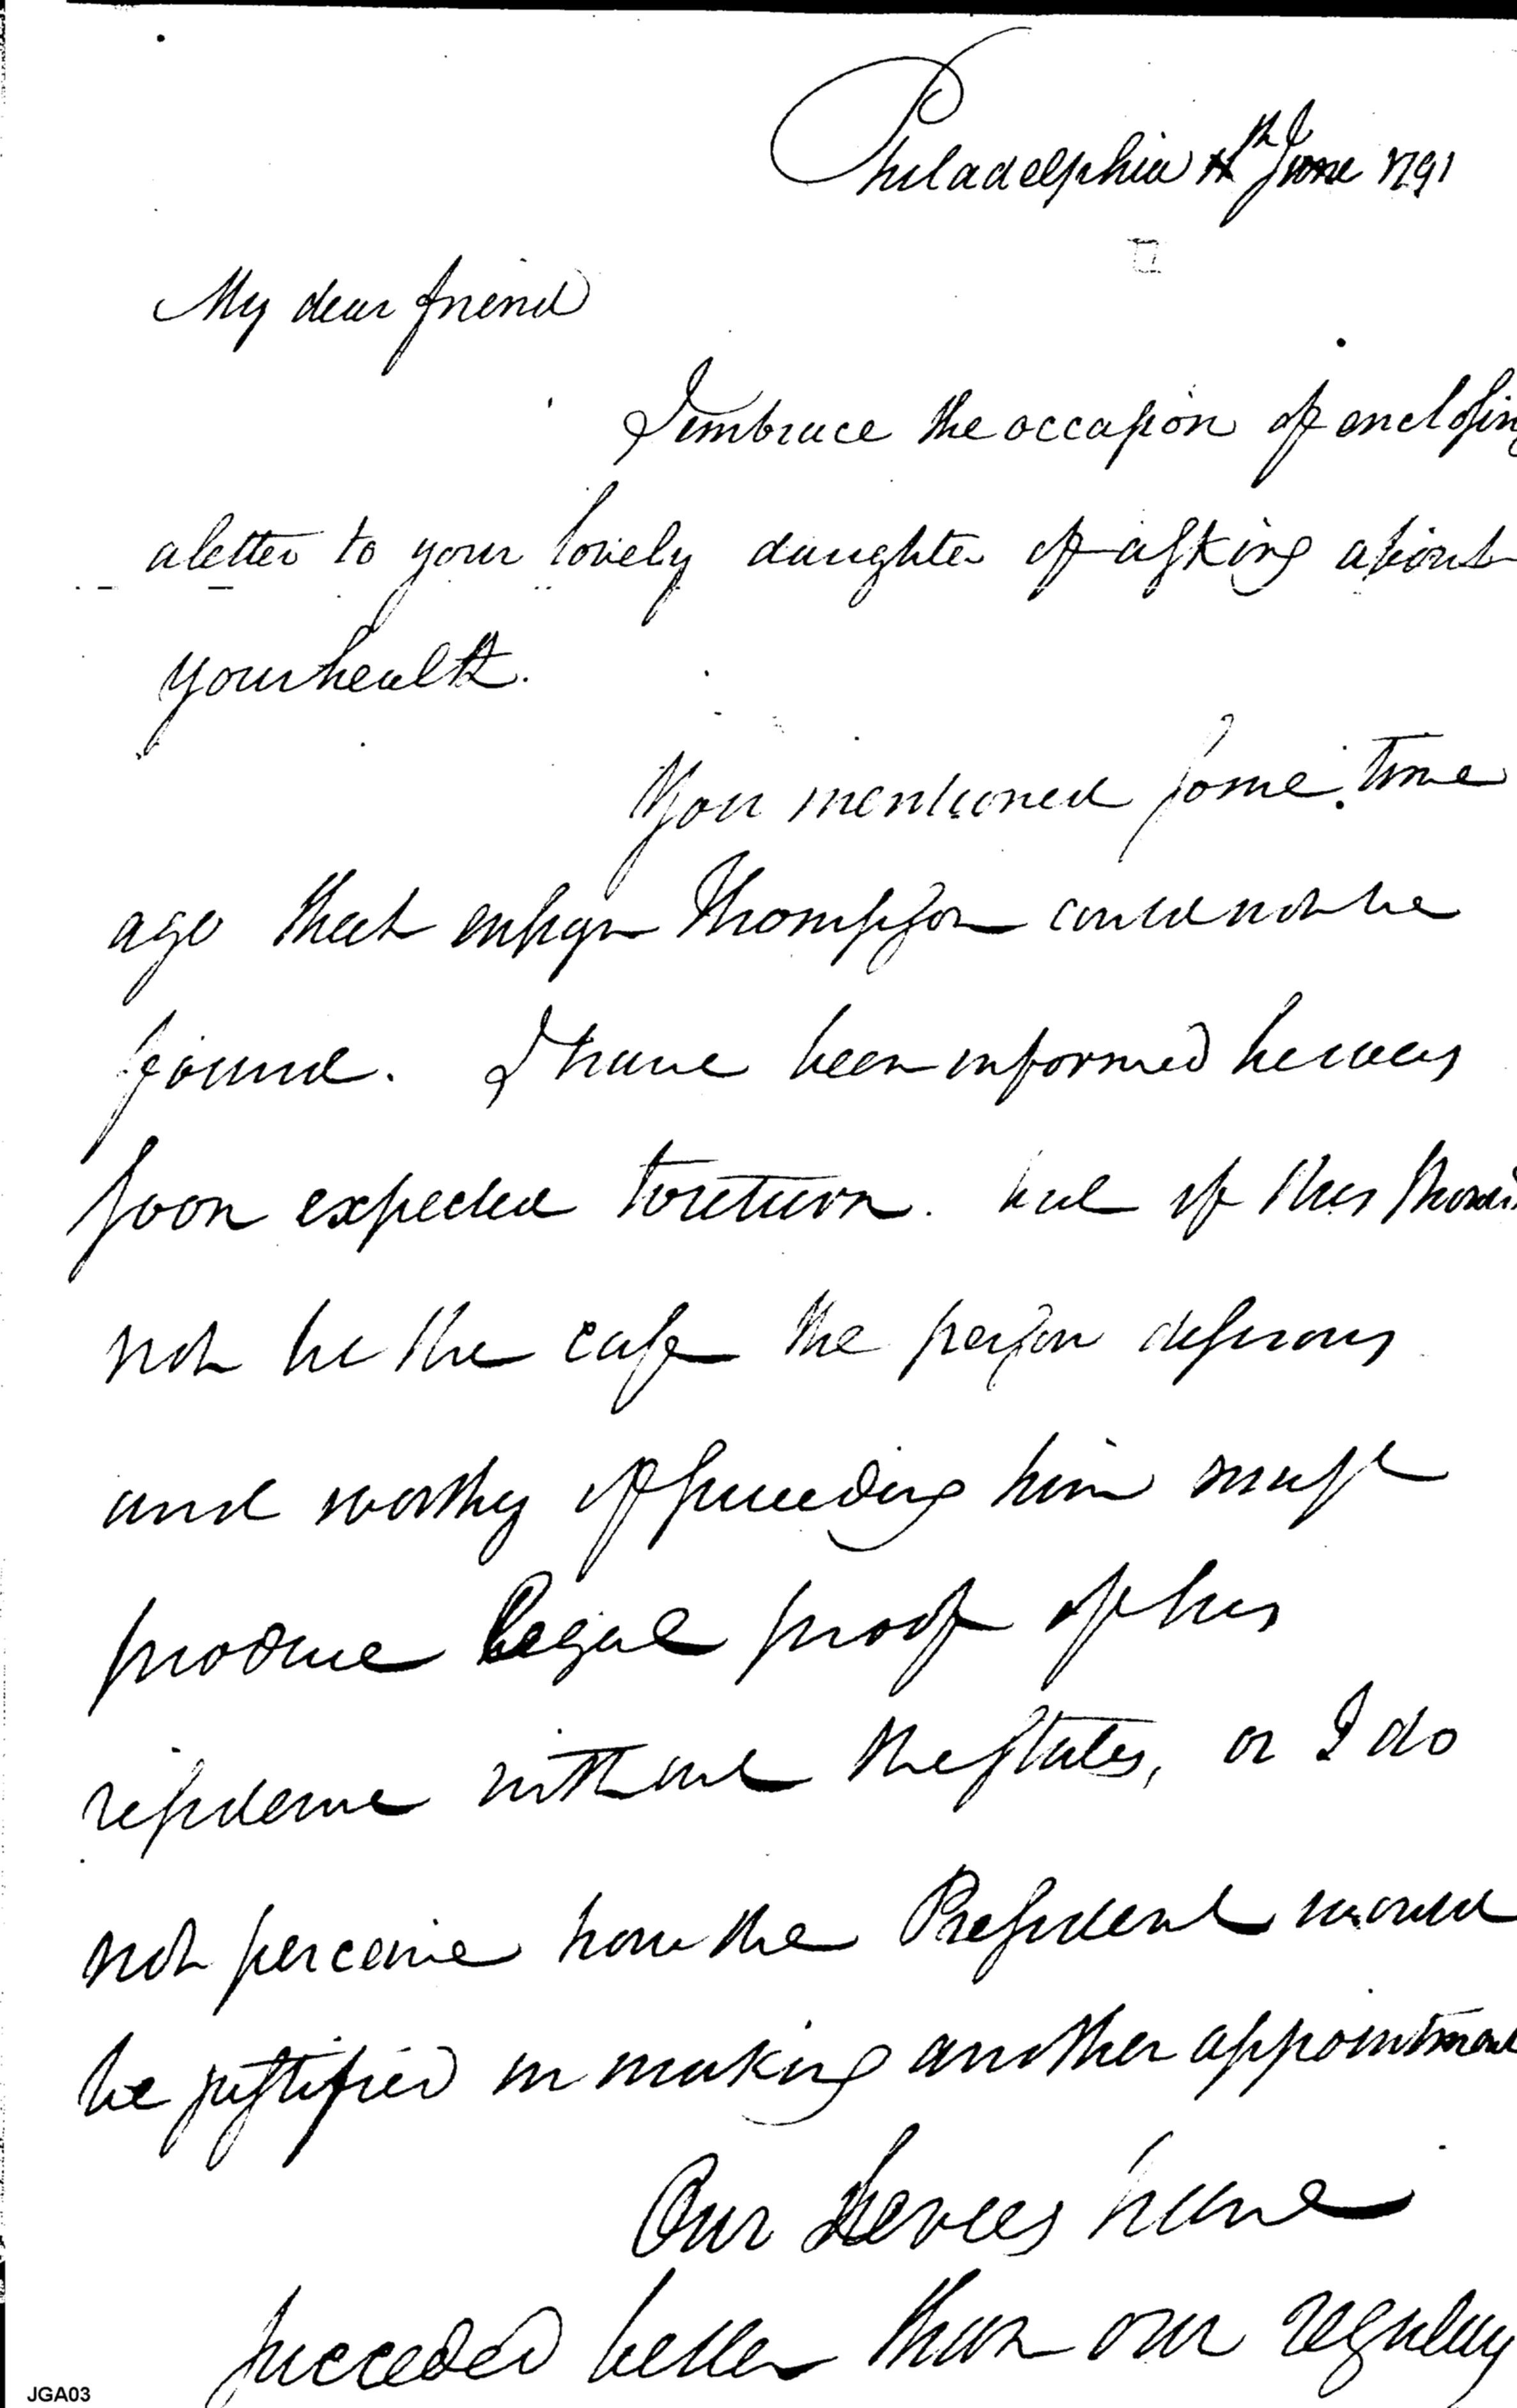 Philadelphia June 1791
My dear friend
I embrace the occasion of enclosing
a letter to your lovely daughter of asking about
your health.
You mentioned some time
ago that ensign Thompson could not be
found. I have been informed he was
soon expected to return. but if this should
not be the case the person desirous
and worthy of succeeding him must
produce legal proof of his
residence without the states, or I do
not perceive how the President would
be justified in making another appointment
Our levies have
succeeded better than our regulars
JGA03